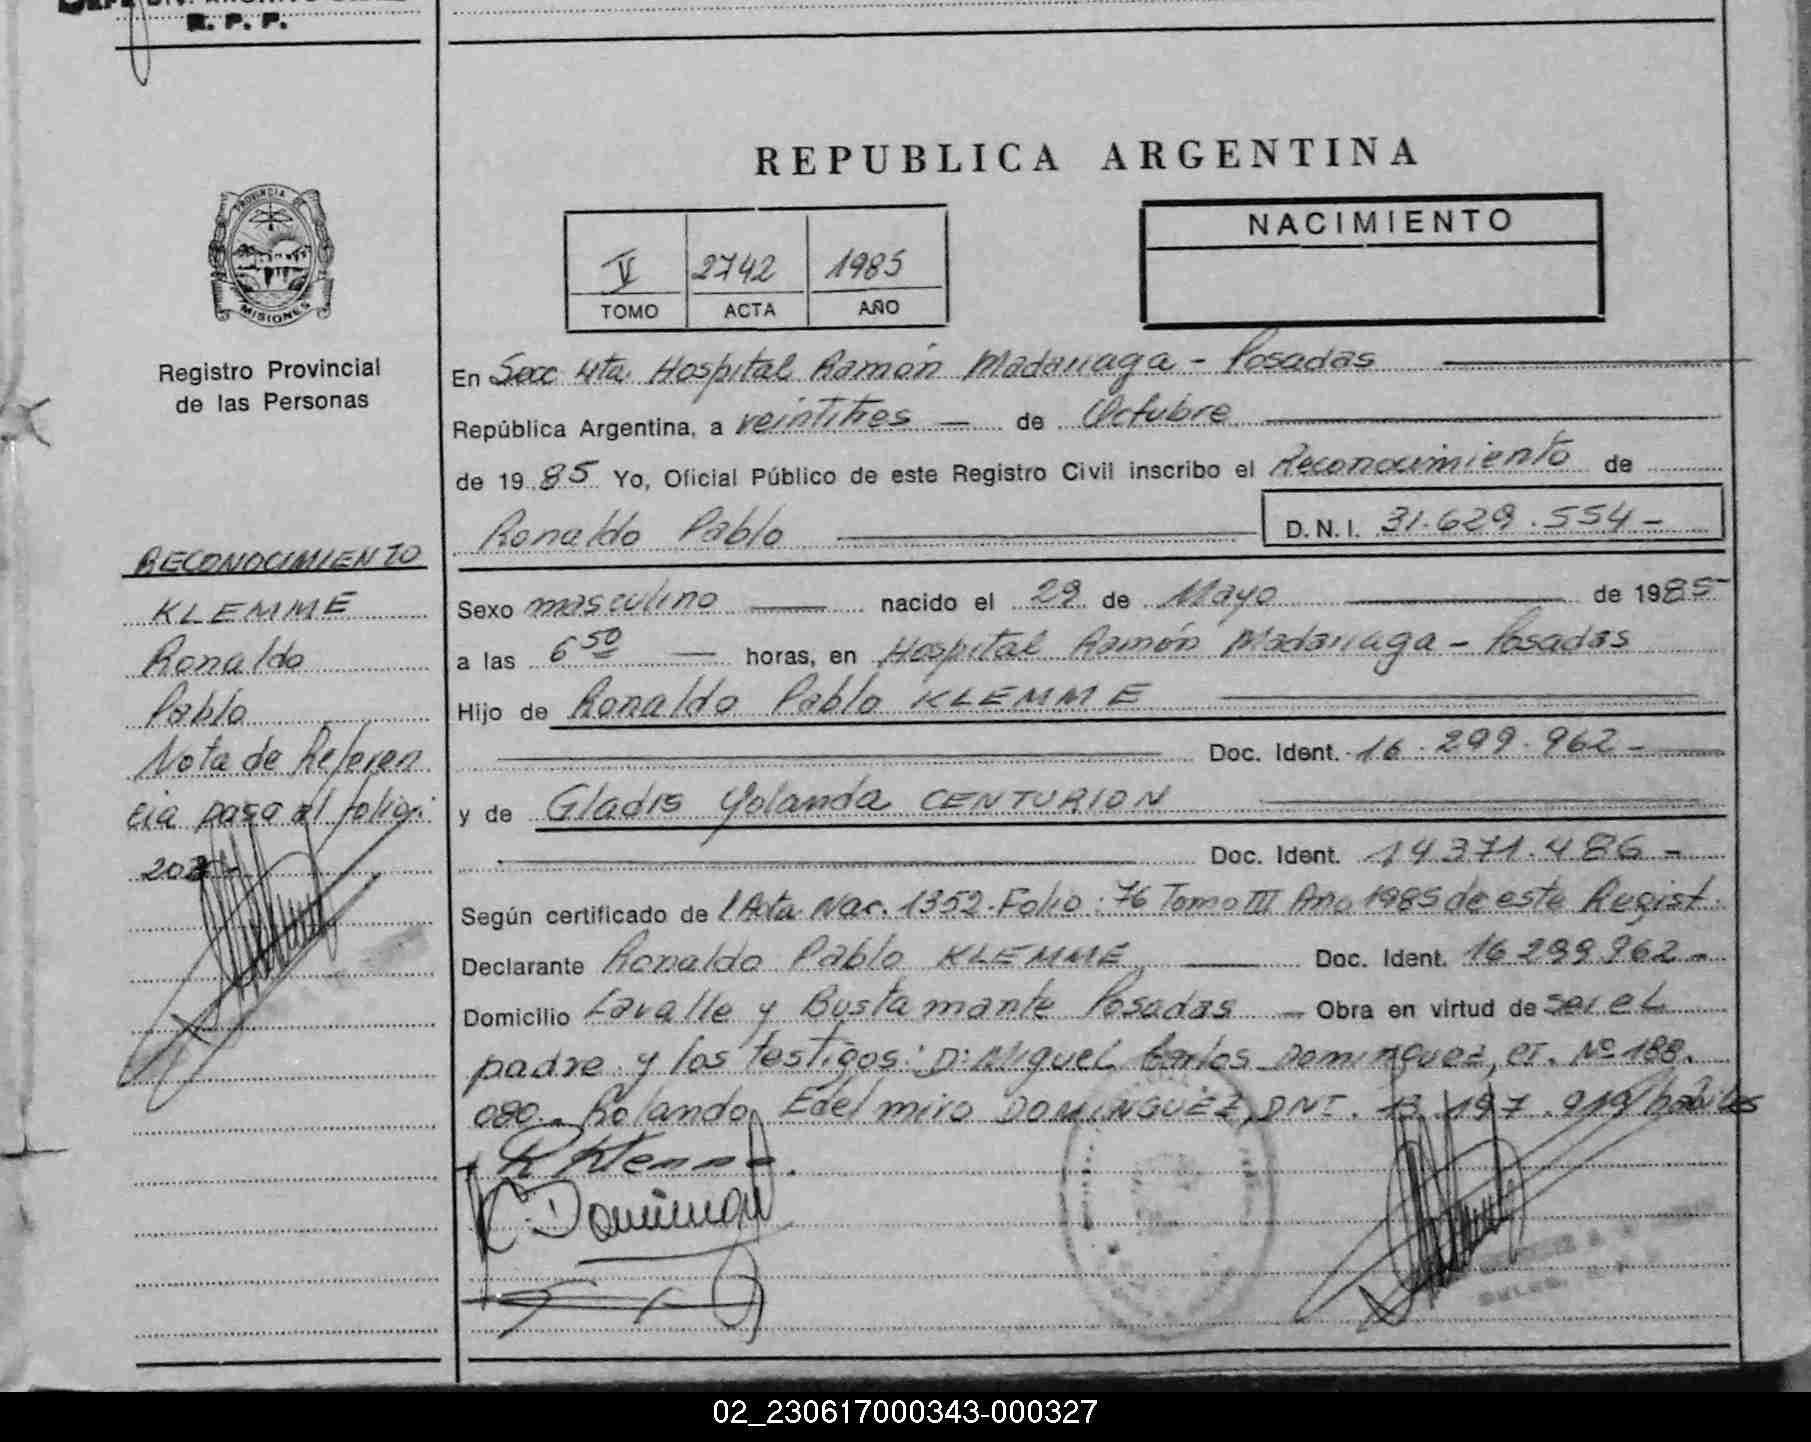 DIV. ARCHIVO
R. P. P.
REPUBLICA ARGENTINA
PROVINCIA DE
MISIONES
NACIMIENTO
V 2742 1985
TOMO ACTA AÑO
Registro Provincial
de las Personas
En Secc 4ta Hospital Ramón Madariaga - Posadas
República Argentina, a veintitres — de Octubre
de 1985 Yo, Oficial Público de este Registro Civil inscribo el Reconocimiento de
Ronaldo Pablo D.N.I. 31.629.554-
RECONOCIMIENTO
KLEMME
Ronaldo
Pablo
Nota de Referen
cia pasa al folio:
202-
Sexo masculino — nacido el 29 de Mayo — de 1985
a las 6 50 — horas, en Hospital Ramón Madariaga - Posadas
Hijo de Ronaldo Pablo KLEMME
Doc. Ident. 16.299.962-
y de Gladis Yolanda CENTURION
Doc. Ident. 14.371.486-
Según certificado de l'Acta Nac. 1352. Folio: 76 Tomo III Año 1985 de este Regist.
Declarante Ronaldo Pablo KLEMME — Doc. Ident. 16.299.962-
Domicilio Lavalle y Bustamante Posadas — Obra en virtud de ser el
padre y los testigos: D: Miguel Carlos Dominguez, CI. Nº 188.
080- Rolando Edelmiro DOMINGUEZ, DNI. 13.197.919 hábiles
R Klemme
C. Dominguez
02_230617000343-000327